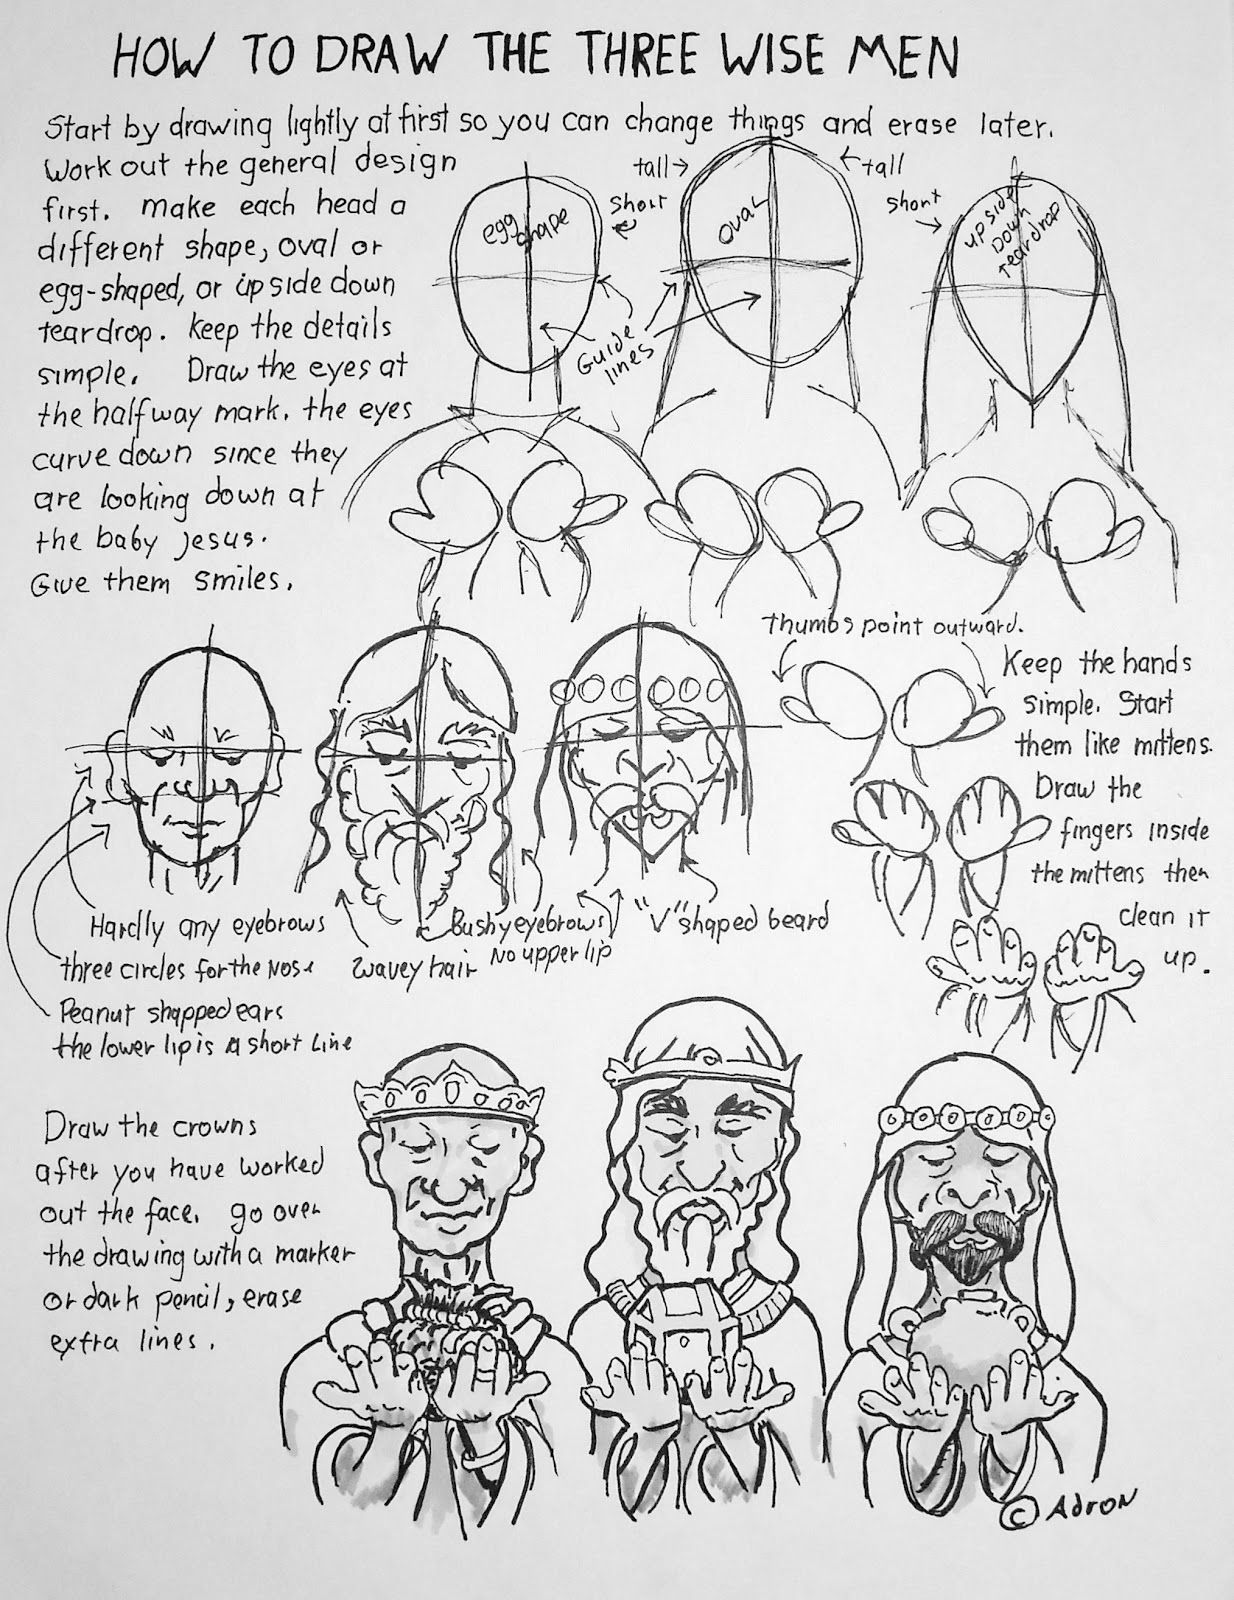 HOW TO DRAW THE THREE WISE MEN
Start by drawing lightly at first so you can change things and erase later.
Work out the general design
first. make each head a
different shape, oval or
egg-shaped, or upside down
teardrop. keep the details
simple. Draw the eyes at
the halfway mark. the eyes
curve down since they
are looking down at
the baby jesus.
Give them smiles.
egg shape
short
tall
Oval
tall
short
upside
Down
teardrop
Guide
lines
thumbs point outward.
Keep the hands
simple. Start
them like mittens.
Draw the
fingers inside
the mittens then
clean it
up.
Hardly any eyebrows
three circles for the Nose
Peanut shapped ears
the lower lip is a short Line
wavey hair
Bushy eyebrows
No upper lip
"V" shaped beard
Draw the crowns
after you have worked
out the face. go over
the drawing with a marker
or dark pencil, erase
extra lines.
© Adron